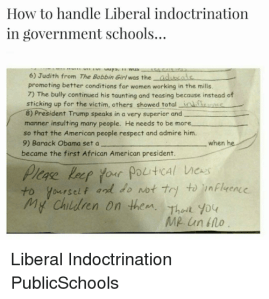 How to handle Liberal indoctrination
in government schools...
6) Judith from The Bobbin Girl was the advocate
promoting better conditions for women working in the mills.
7) The bully continued his taunting and teasing because instead of
sticking up for the victim, others showed total
8) President Trump speaks in a very superior and
manner insulting many people. He needs to be more
so that the American people respect and admire him.
9) Barack Obama set a when he
became the first African American president.
Please Keep your Political views
to yourself and do not try to influence
My Children on them. Thank you
Liberal Indoctrination
PublicSchools